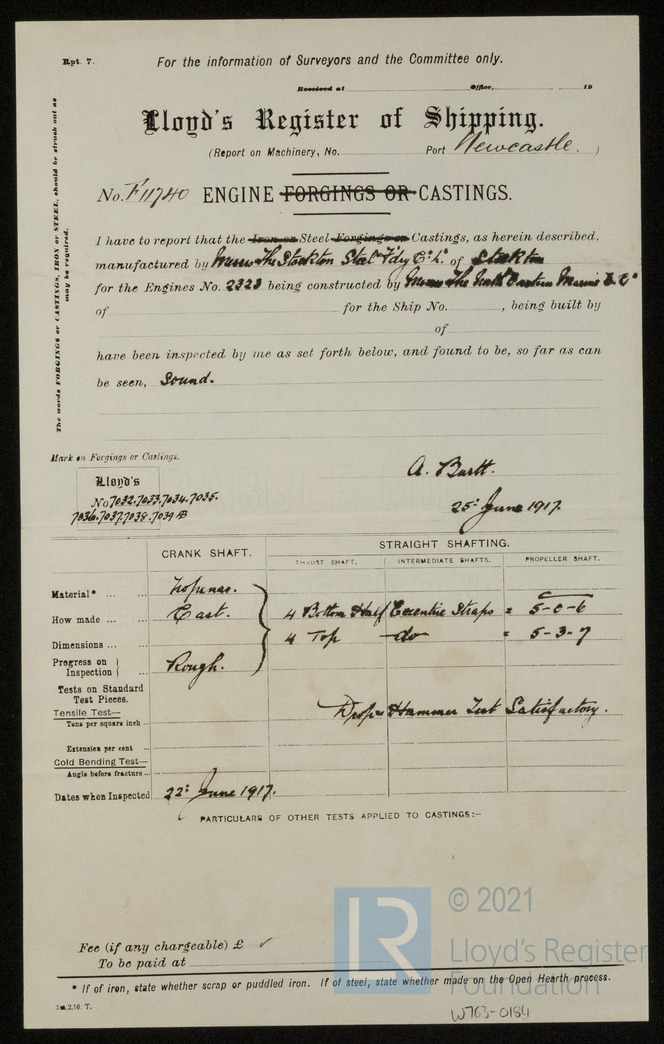 Rpt. 7.
For the information of Surveyors and the Committee only.
Received at Office, 19
Lloyd's Register of Shipping.
(Report on Machinery, No. Port Newcastle. )
No. F11740 ENGINE FORGINGS OR CASTINGS.
The words FORGINGS or CASTINGS, IRON or STEEL, should be struck out as
may be required.
I have to report that the Iron or Steel Forgings or Castings, as herein described,
manufactured by Messrs The Stockton Steel Fdy Co Ld. of Stockton
for the Engines No. 2323 being constructed by Messrs The North Eastern Marine E. Co
of for the Ship No. , being built by
of
have been inspected by me as set forth below, and found to be, so far as can
be seen, Sound.
Mark on Forgings or Castings.
Lloyd's
No 7032.7033.7034.7035.
7036.7037.7038.7039 AB
A. Burtt.
25: June 1917.
CRANK SHAFT. STRAIGHT SHAFTING.
THRUST SHAFT. INTERMEDIATE SHAFTS. PROPELLER SHAFT.
Material* ... ...
How made ... ... Cast. 4 Bottom Half Eccentric Straps = 5-0-6
Dimensions ... ... 4 Top do = 5-3-7
Progress on
Inspection ... Rough.
Tests on Standard
Test Pieces.
Tensile Test—
Tons per square inch ...
Drop & Hammer Test Satisfactory.
Extension per cent ...
Cold Bending Test—
Angle before fracture ...
Dates when Inspected 22: June 1917.
PARTICULARS OF OTHER TESTS APPLIED TO CASTINGS:—
Fee (if any chargeable) £ ✓
To be paid at
* If of iron, state whether scrap or puddled iron. If of steel, state whether made on the Open Hearth process.
1m,2,16. T.
LR © 2021
Lloyd's Register
Foundation
W763-0184